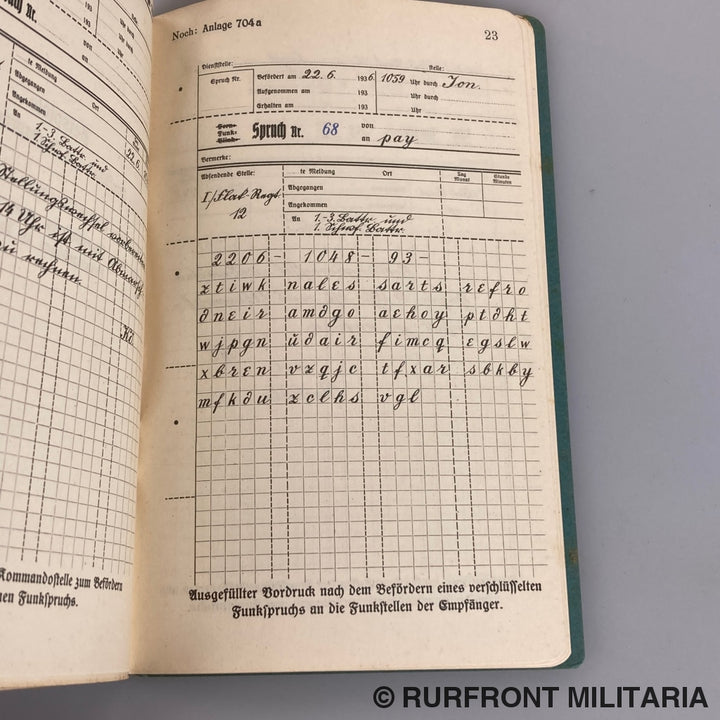 Spruch Nr.
193
193
193
von
an
te Meldung
Abgegangen
Ort
Angekommen
An
1.-3. Battr. und
1. Schwf. Battr.
22.6.
Stellungswechsel vorbereiten
14 Uhr ist mit Abmarsch
zu rechnen.
Kommandostelle zum Befördern
nen Funkspruchs.
Noch: Anlage 704a
23
Dienststelle: Stelle:
Spruch Nr. Befördert am 22.6. 1936. 1059 Uhr durch Ion.
Aufgenommen am 193 Uhr durch
Erhalten am 193 Uhr
Fern-
Funk- Spruch Nr. 68 von
Blink- an pay
Vermerke:
Absendende Stelle: te Meldung Ort Tag Monat Stunde Minuten
I/Flak-Regt. Abgegangen
12 Angekommen
An 1.-3. Battr. und
1. Schwf. Battr.
2206 - 1048 - 93 -
ztiwk nales sarts refro
dneir amdgo aehoy ptdht
wjpgn udair fimcq egslw
xbren vzqjc tfxar sbkby
mfkdu zclhs vgl
Ausgefüllter Vordruck nach dem Befördern eines verschlüsselten
Funkspruchs an die Funkstellen der Empfänger.
© RURFRONT MILITARIA